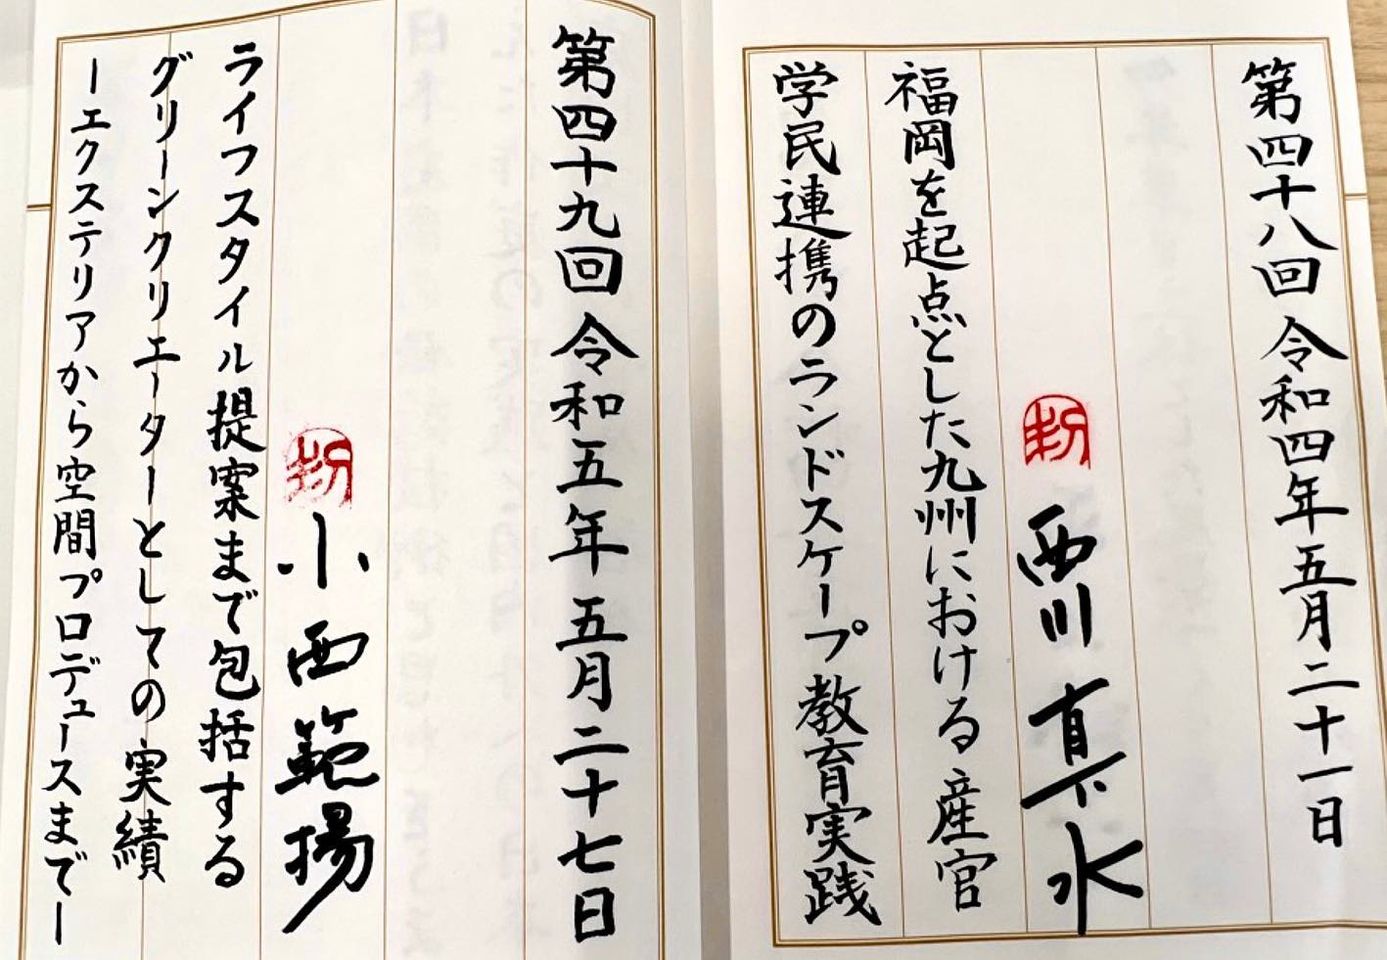 第四十八回 令和四年 五月二十一日
西川 真水
福岡を起点とした九州における産官
学民連携のランドスケープ教育実践
第四十九回 令和五年 五月二十七日
小西範揚
ライフスタイル提案まで包括する
グリーンクリエーターとしての実績
ーエクステリアから空間プロデュースまでー